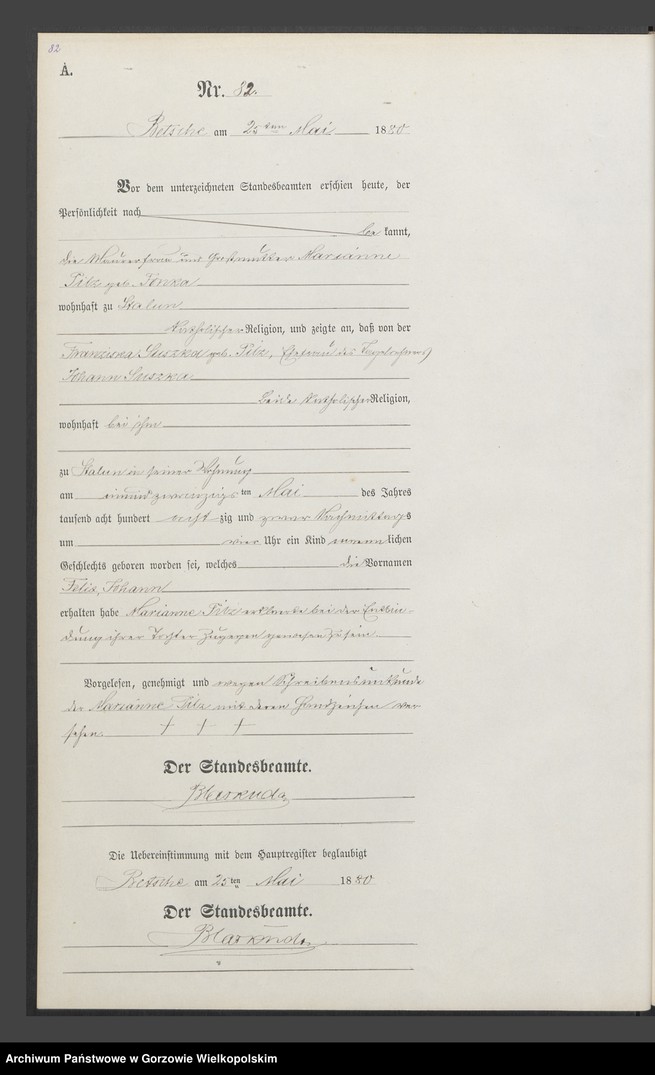 82
A.
Nr. 82.
Betsche am 25ten Mai 1880
Vor dem unterzeichneten Standesbeamten erschien heute, der
Persönlichkeit nach
be kannt,
die Maurerfrau und Marianne
Pilz geb. Fonza
wohnhaft zu Stalun
Katholischer Religion, und zeigte an, daß von der
Franziska Suszka geb. Pilz, Ehefrau des
Johann Suszka
beide Katholischer Religion,
wohnhaft bei ihm
zu Stalun in seiner Wohnung
am einundzwanzigsten Mai des Jahres
tausend acht hundert acht zig und zwar Nachmittags
um vier Uhr ein Kind männ lichen
Geschlechts geboren worden sei, welches die Vornamen
Felix, Johann
erhalten habe Marianne Pilz erklärte bei der Entbin-
dung ihrer Tochter zugegen gewesen zu sein
Vorgelesen, genehmigt und wegen Schreibensunkunde
der Marianne Pilz mit deren Handzeichen ver
sehen. + + +
Der Standesbeamte.
Die Uebereinstimmung mit dem Hauptregister beglaubigt
Betsche am 25ten Mai 1880
Der Standesbeamte.
Archiwum Państwowe w Gorzowie Wielkopolskim